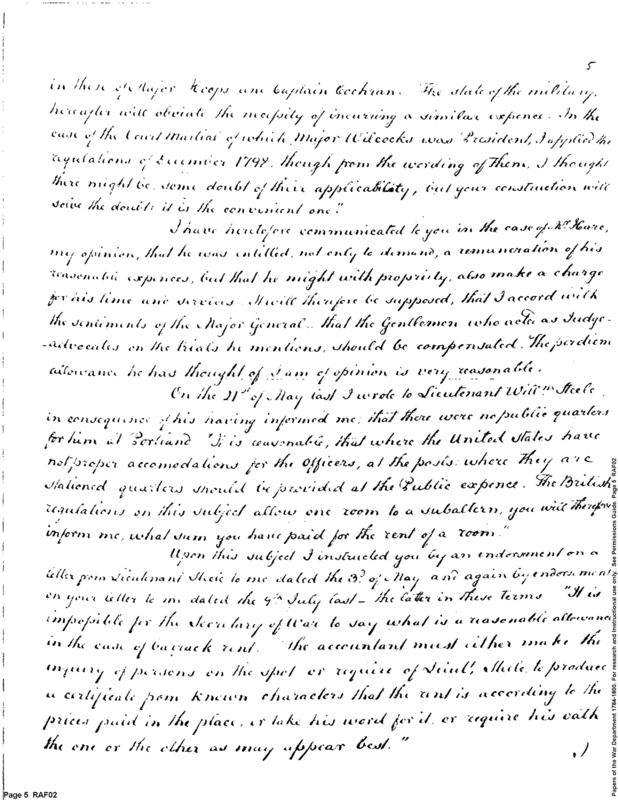 5
in those of Major Hoops and Captain Cochran. The state of the military.
hereafter will obviate the necessity of incurring a similar expence. In the
case of the Court Martial of which Major Wilcocks was President, I applied the
regulations of December 1792, though from the wording of them, I thought
there might be some doubt of their applicability, but your construction will
solve the doubt: it is the convenient one."
I have heretofore communicated to you in the case of Mr.
my opinion, that he was entitled, not only to demand, a remuneration of his
reasonable expences, but that he might with propriety, also make a charge
for his time and services. It will therefore be supposed, that I accord with
the sentiments of the Major General.. that the Gentlemen who acted as Judge-
-advocates on the trials he mentions, should be compensated. The per diem
allowance he has thought of I am of opinion is very reasonable.
On the 21st of May last I wrote to Lieutenant Willm Steele
in consequence of his having informed me; that there were no public quarters
for him at Portland "It is reasonable, that where the United States have
not proper accomodations for the Officers, at the posts: where they are
stationed quarters should be provided at the Public expence. The British
regulations on this subject allow one room to a subaltern, you will therefore
inform me, what sum you have paid for the rent of a room."
Upon this subject I instructed you by an endorsment on a
letter from Lieutenant Steele to me dated the 3d. of May and again by endorsment
on your letter to me dated the 4th July last - the latter in these terms "It is
impossible for the Secretary of War to say what is a reasonable allowance
in the case of barrack rent. The accountant must either make the
inquiry of persons on the spot or require of Lieut. Steele, to produce
a certificate from known characters that the rent is according to the
prices paid in the place, or take his word for it, or require his oath
the one or the other as may appear best."
Page 5 RAF02
Papers of the War Department 1784-1800. For research and instructional use only. See Permissions Guide. Page 5 RAF02